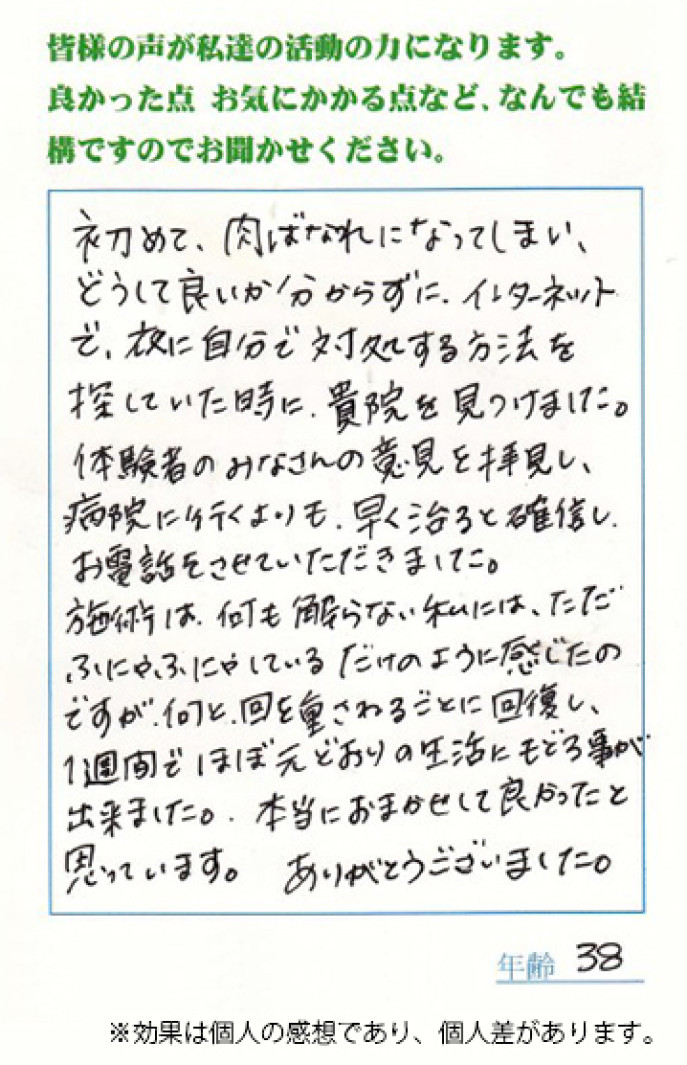 皆様の声が私達の活動の力になります。
良かった点 お気にかかる点など、なんでも結
構ですのでお聞かせください。
初めて、肉ばなれになってしまい、
どうして良いか分からずに、インターネット
で、夜に自分で対処する方法を
探していた時に、貴院を見つけました。
体験者のみなさんの意見を拝見し、
病院に行くよりも、早く治ると確信し、
お電話をさせていただきました。
施術は、何も解らない私には、ただ
ふにゃふにゃしているだけのように感じたの
ですが、何と、回を重されるごとに回復し、
1週間でほぼ元どおりの生活にもどる事が
出来ました。本当におまかせして良かったと
思っています。 ありがとうございました。
年齢 38
※効果は個人の感想であり、個人差があります。